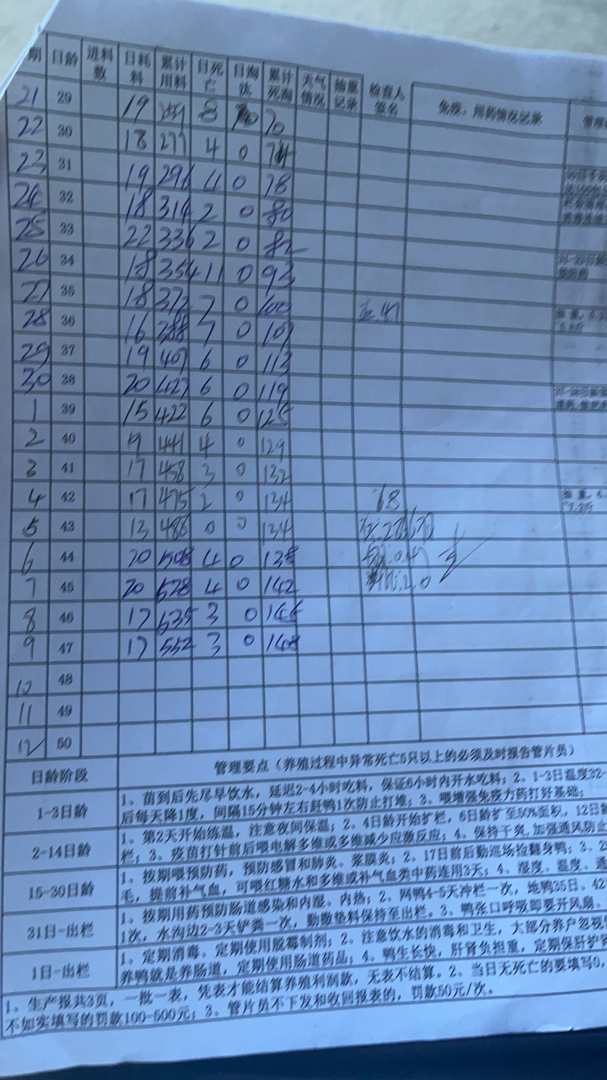 期 日龄 进料数 日耗料 累计用料 日死亡 日淘汰 累计死淘 天气情况 抽重记录 检查人签名 免疫、用药情况记录
21 29 19 8 70
22 30 18 277 4 0 74
23 31 19 296 4 0 78
24 32 18 314 2 0 80
25 33 22 336 2 0 82
26 34 18 354 11 0 93
27 35 18 372 7 0 100
28 36 16 388 7 0 107
29 37 19 407 6 0 113
30 38 20 427 6 0 119
1 39 15 422 6 0 125
2 40 19 441 4 0 129
3 41 17 458 3 0 132
4 42 17 475 2 0 134
5 43 13 486 0 0 134
6 44 20 508 4 0 138
7 45 20 528 4 0 142
8 46 17 535 3 0 145
9 47 17 552 3 0 148
10 48
11 49
12 50
日龄阶段 管理要点（养殖过程中异常死亡5只以上的必须及时报告管片员）
1-3日龄 1、苗到后先尽早饮水，延迟2-4小时吃料，保证6小时内开水吃料；2、1-3日温度32-
后每天降1度，间隔15分钟左右赶鸭1次防止打堆；3、喂增强免疫力药打好基础；
2-14日龄 1、第2天开始练温，注意夜间保温；2、4日龄开始扩栏，6日龄扩至50%面积，12日龄
栏；3、疫苗打针前后喂电解多维或多维减少应激反应；4、保持干爽，加强通风防止
15-30日龄 1、按期喂预防药，预防感冒和肺炎、浆膜炎；2、17日前后勤巡场捡翻身鸭；3、2
毛，提前补气血，可喂红糖水和多维或补气血类中药连用3天；4、湿度、温度、通
31日-出栏 1、按期用药预防肠道感染和内湿、内热；2、网鸭4-5天冲栏一次，地鸭35日、42
1次，水沟边2-3天铲粪一次，勤撒垫料保持至出栏。3、鸭张口呼吸即要开风扇、
1日-出栏 1、定期消毒、定期使用脱霉制剂；2、注意饮水的消毒和卫生，大部分养户忽视
养鸭就是养肠道，定期使用肠道药品；4、鸭生长快，肝肾负担重，定期保肝护肾
1、生产报共3页，一批一表，凭表才能结算养殖利润款，无表不结算。2、当日无死亡的要填写0，
不如实填写的罚款100-500元；3、管片员不下发和收回报表的，罚款50元/次。